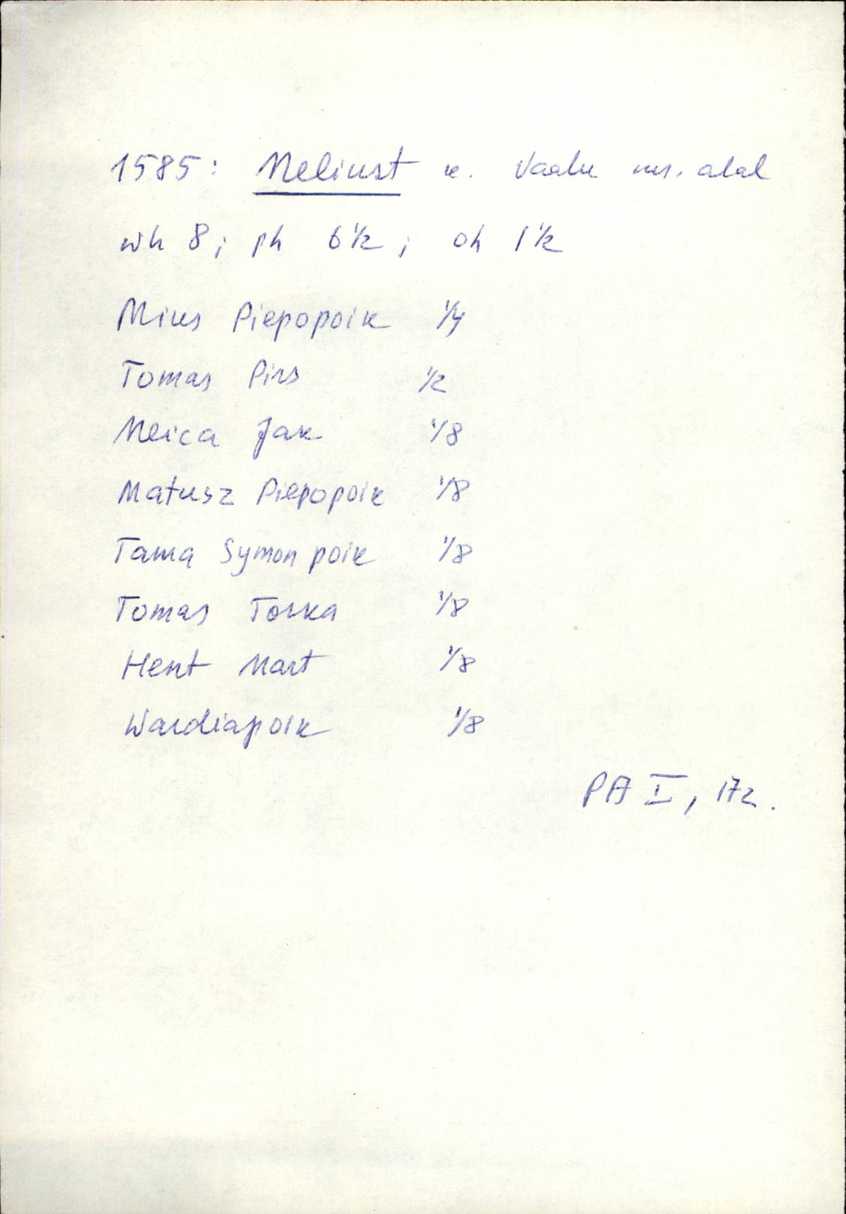 1585: Meliust k. Vaalu ms. alal
wh 8; ph 6 1/2; oh 1 1/2
Mius Piepopoik 1/4
Tomas Pirs 1/2
Meica Jak 1/8
Matusz Piepopoik 1/8
Tama Symon poik 1/8
Tomas Torka 1/8
Hent Mart 1/8
Wardiapoik 1/8
PA I, 172.